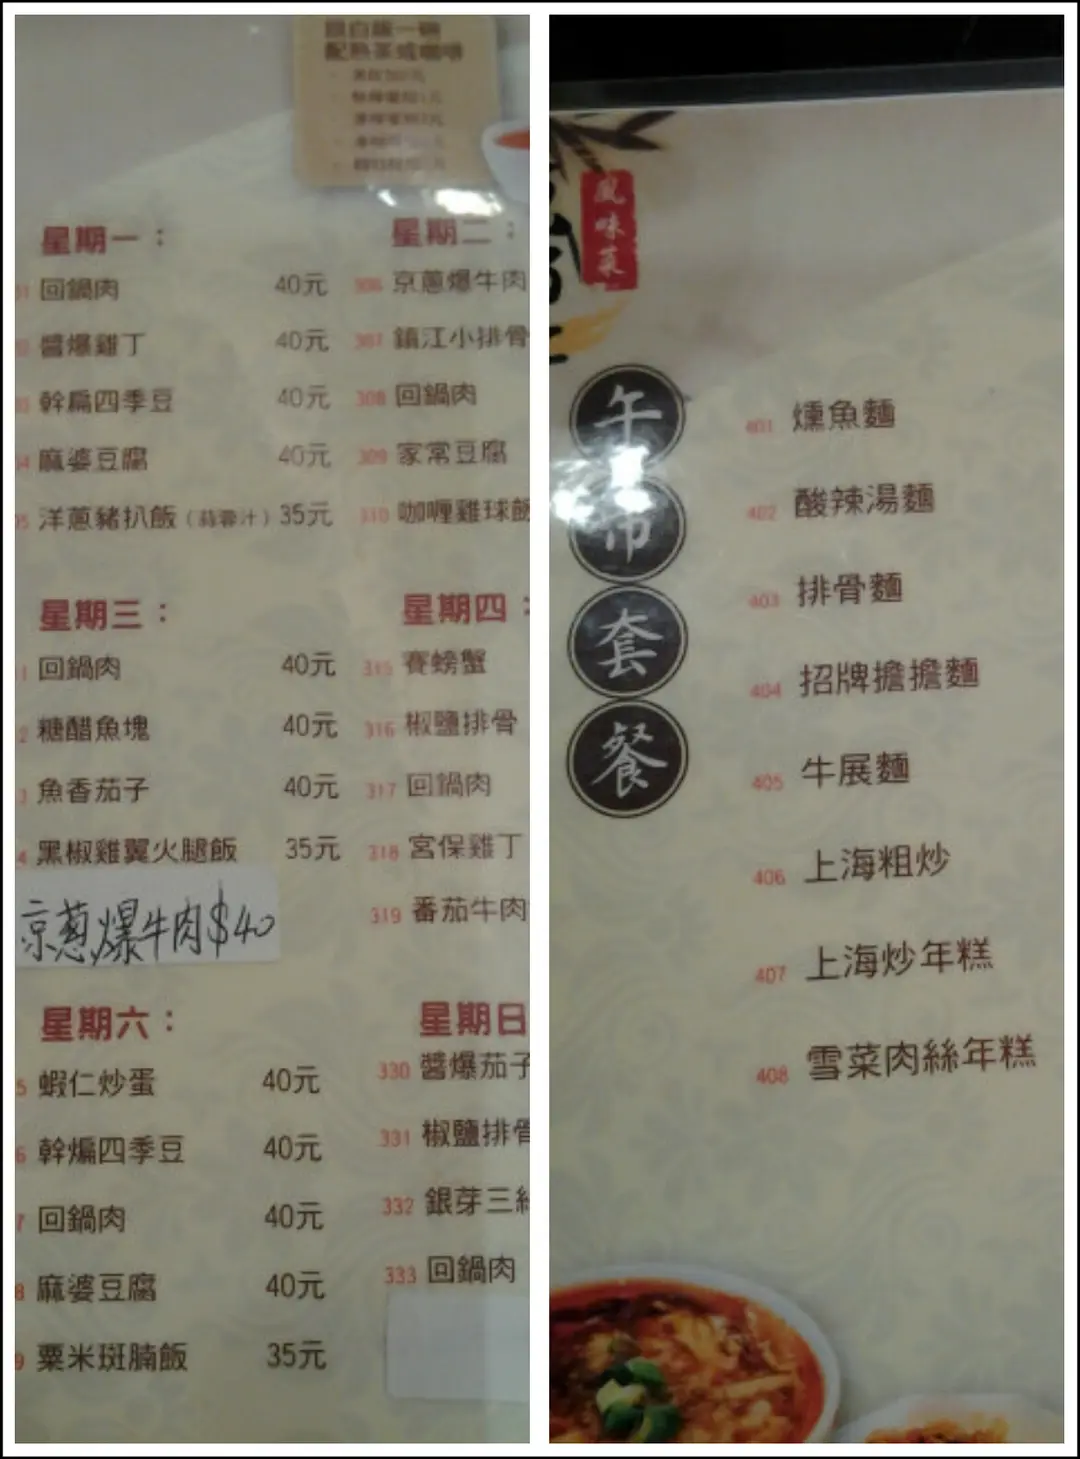 跟白飯一碗
配熱茶或咖啡
星期一：
回鍋肉 40元
醬爆雞丁 40元
幹扁四季豆 40元
麻婆豆腐 40元
洋蔥豬扒飯（蒜蓉汁）35元
星期二：
306 京蔥爆牛肉
307 鎮江小排骨
308 回鍋肉
309 家常豆腐
310 咖喱雞球飯
星期三：
回鍋肉 40元
糖醋魚塊 40元
魚香茄子 40元
黑椒雞翼火腿飯 35元
京蔥爆牛肉$40
星期四：
315 賽螃蟹
316 椒鹽排骨
317 回鍋肉
318 宮保雞丁
319 番茄牛肉
星期六：
蝦仁炒蛋 40元
幹煸四季豆 40元
回鍋肉 40元
麻婆豆腐 40元
粟米斑腩飯 35元
星期日
330 醬爆茄子
331 椒鹽排骨
332 銀芽三絲
333 回鍋肉
風味菜
午市套餐
401 燻魚麵
402 酸辣湯麵
403 排骨麵
404 招牌擔擔麵
405 牛展麵
406 上海粗炒
407 上海炒年糕
408 雪菜肉絲年糕